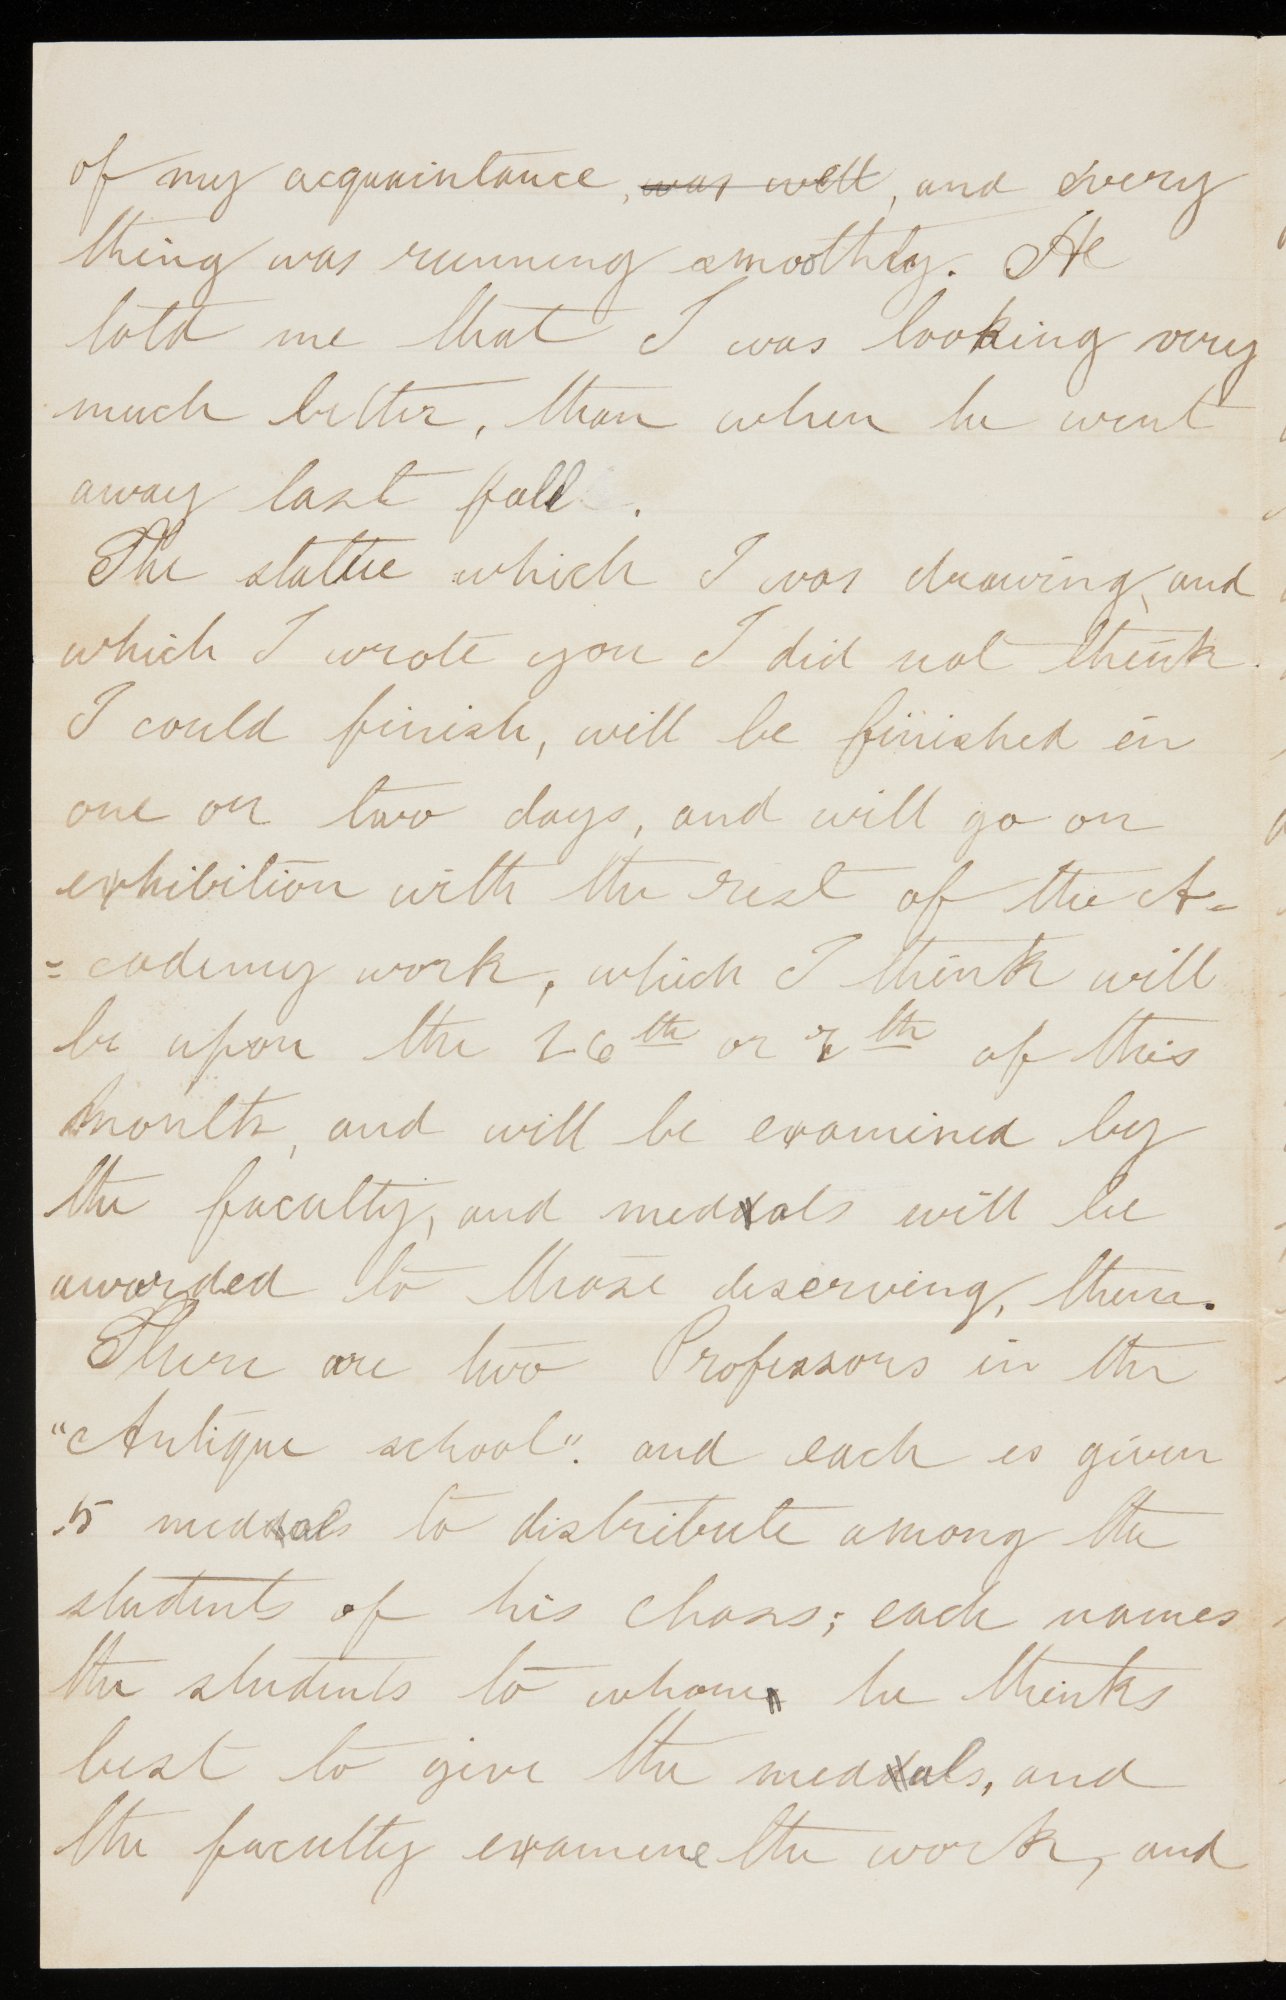 of my acquaintance, was well, and every
thing was running smoothly. He
told me that I was looking very
much better, than when he went
away last fall.
The statue which I was drawing, and
which I wrote you I did not think
I could finish, will be finished in
one or two days, and will go on
exhibition with the rest of the A-
=cademy work, which I think will
be upon the 26th or 7th of this
month, and will be examined by
the faculty, and meddals will be
awarded to those deserving, them.
There are two Professors in the
"Antique school". and each is given
5 meddals to distribute among the
students of his class; each names
the students to whom he thinks
best to give the meddals, and
the faculty examine the work, and